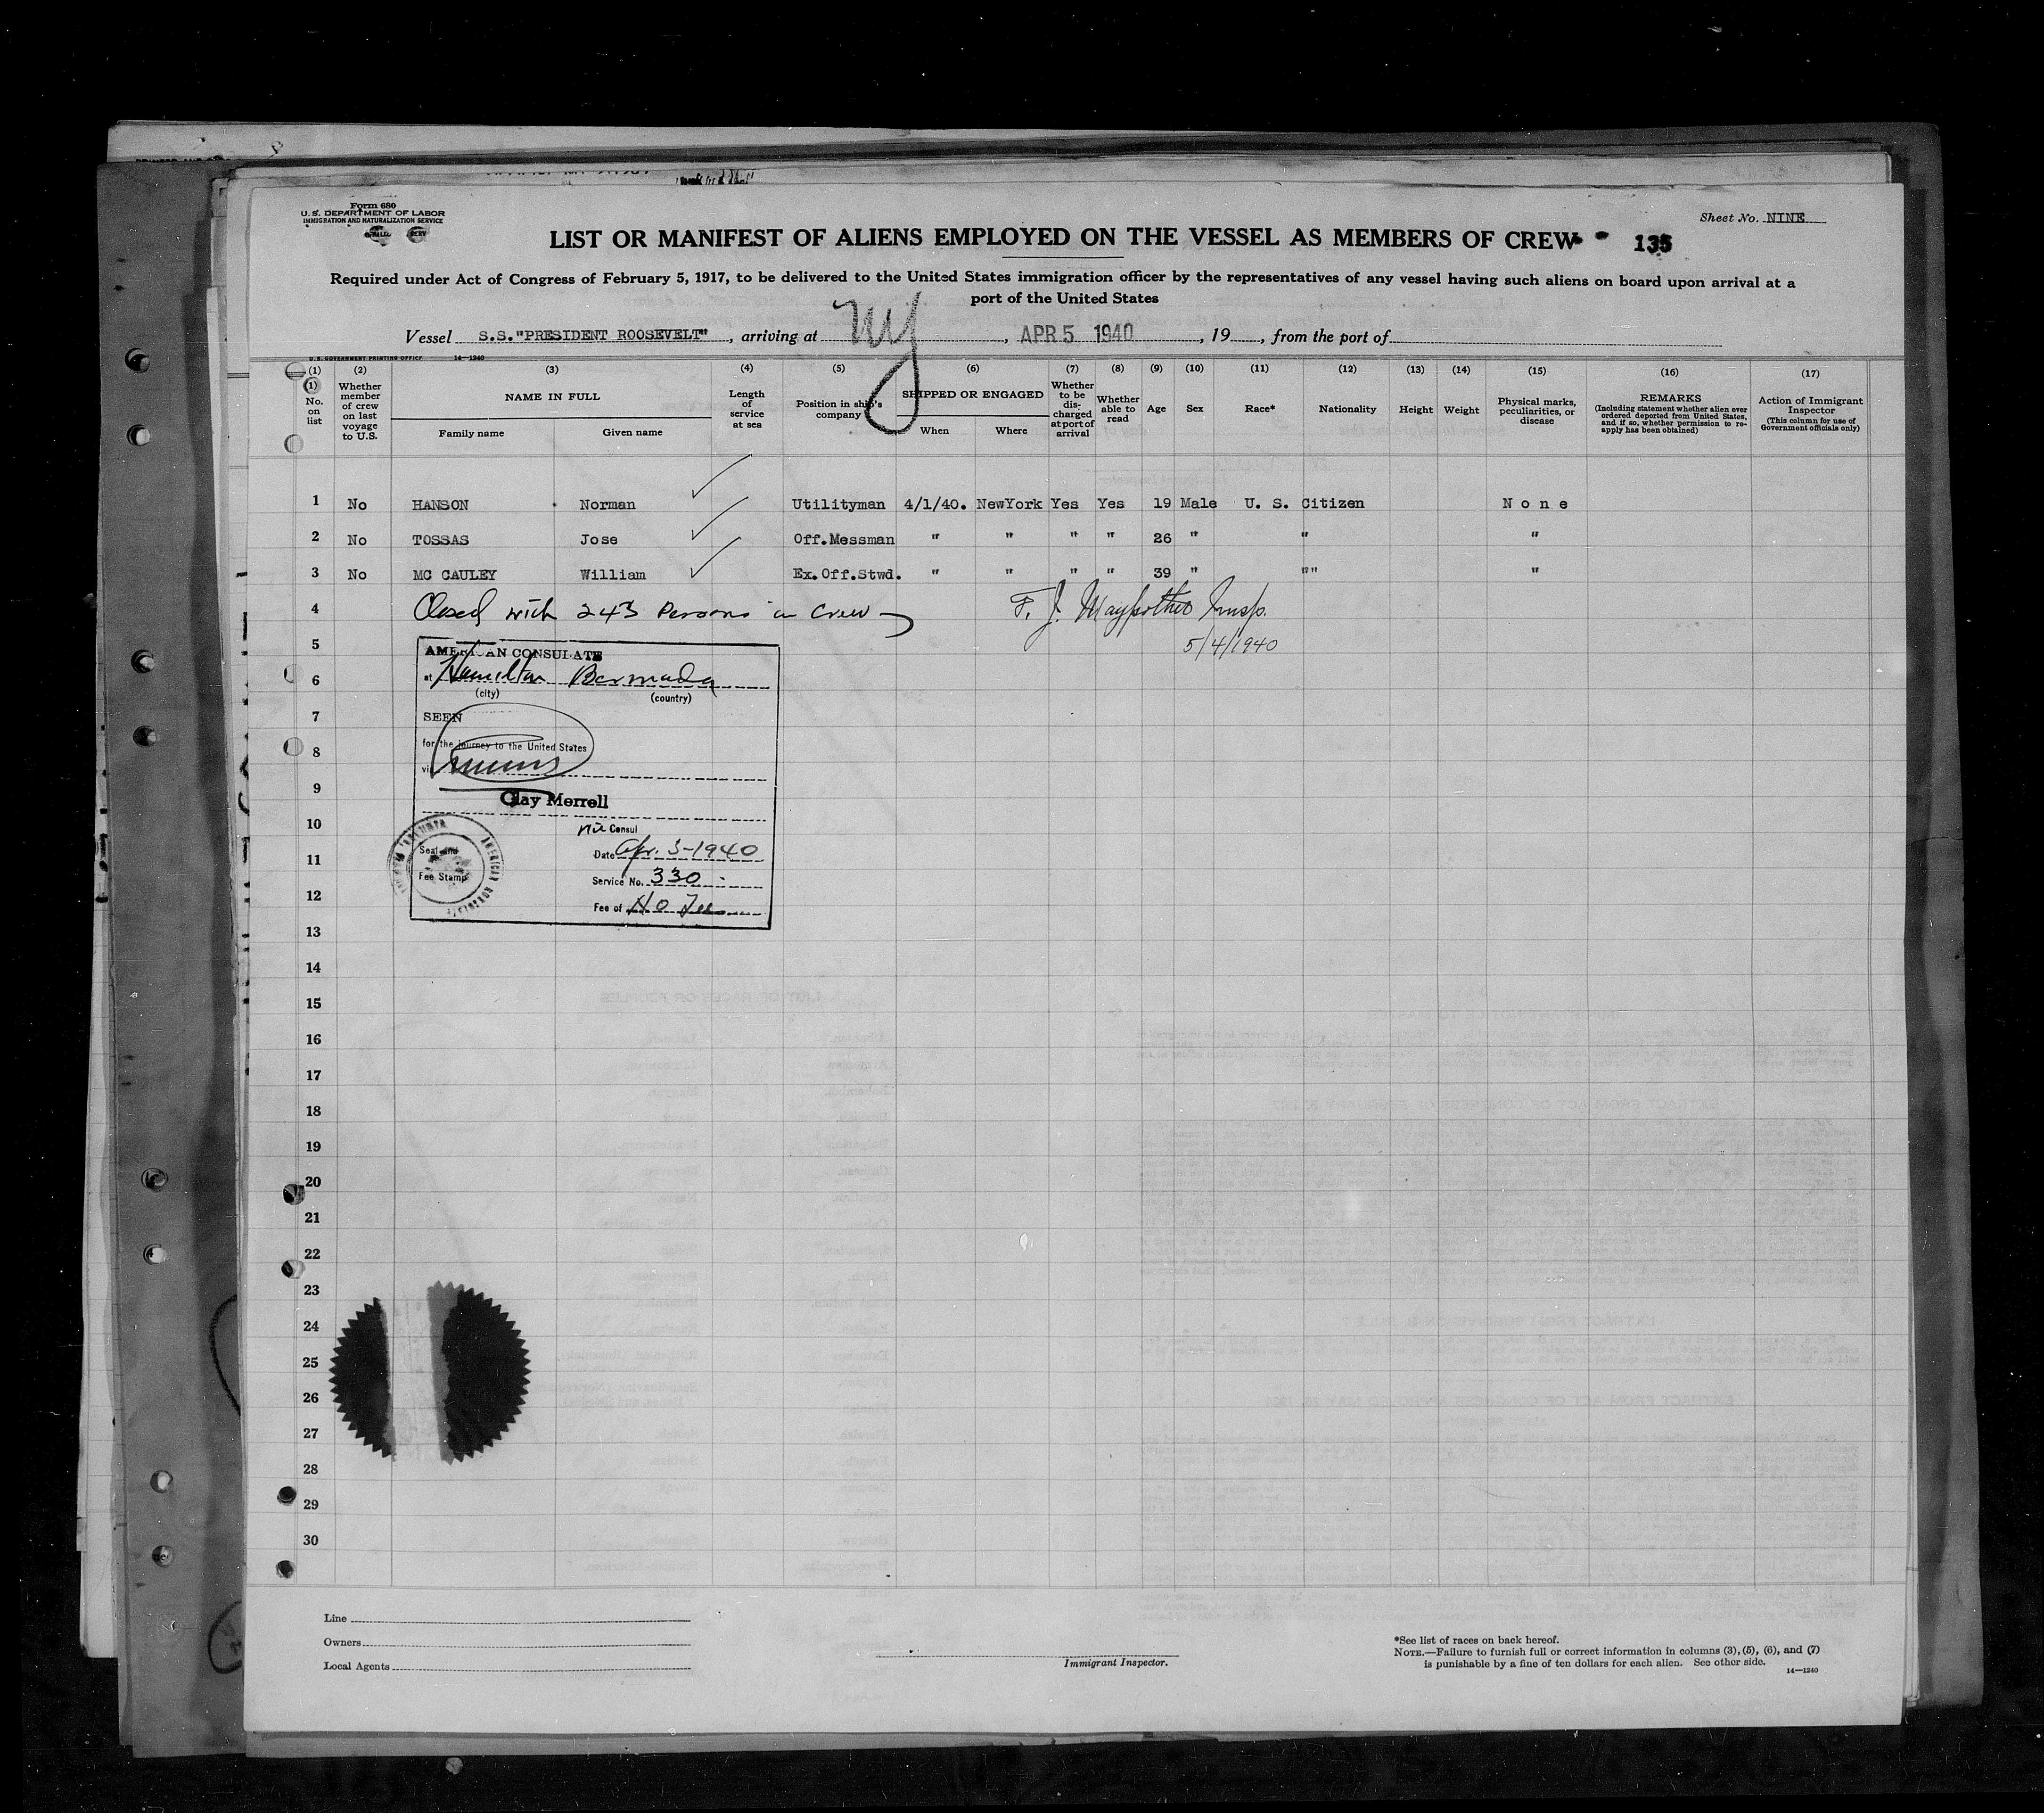 Form 680
U. S. DEPARTMENT OF LABOR
IMMIGRATION AND NATURALIZATION SERVICE
Sheet No. NINE
LIST OR MANIFEST OF ALIENS EMPLOYED ON THE VESSEL AS MEMBERS OF CREW 135
Required under Act of Congress of February 5, 1917, to be delivered to the United States immigration officer by the representatives of any vessel having such aliens on board upon arrival at a
port of the United States
Vessel S.S."PRESIDENT ROOSEVELT", arriving at NY, APR 5 1940, 19, from the port of
U. S. GOVERNMENT PRINTING OFFICE 14—1240
(1) (2) (3) (4) (5) (6) (7) (8) (9) (10) (11) (12) (13) (14) (15) (16) (17)
(1) No. on list
Whether member of crew on last voyage to U.S.
NAME IN FULL
Family name Given name
Length of service at sea
Position in ship's company
SHIPPED OR ENGAGED
When Where
Whether to be discharged at port of arrival
Whether able to read
Age
Sex
Race*
Nationality
Height
Weight
Physical marks, peculiarities, or disease
REMARKS
(Including statement whether alien ever ordered deported from United States, and if so, whether permission to reapply has been obtained)
Action of Immigrant Inspector
(This column for use of Government officials only)
1 No HANSON Norman Utilityman 4/1/40. NewYork Yes Yes 19 Male U. S. Citizen None
2 No TOSSAS Jose Off.Messman " " " " 26 " " "
3 No MC CAULEY William Ex.Off.Stwd. " " " " 39 " "" "
4 Closed with 243 Persons in Crew F. J. Insp.
5 5/4/1940
AMERICAN CONSULATE
6
at Hamilton Bermuda
(city) (country)
7
SEEN
8
for the journey to the United States
via
9
Clay Merrell
10
Vice Consul
Date Apr. 3-1940
11
Seal and
Fee Stamp
Service No. 330
12
Fee of No Fee
13
14
15
16
17
18
19
20
21
22
23
24
25
26
27
28
29
30
Line
Owners
Local Agents
Immigrant Inspector.
*See list of races on back hereof.
NOTE.—Failure to furnish full or correct information in columns (3), (5), (6), and (7)
is punishable by a fine of ten dollars for each alien. See other side.
14—1240